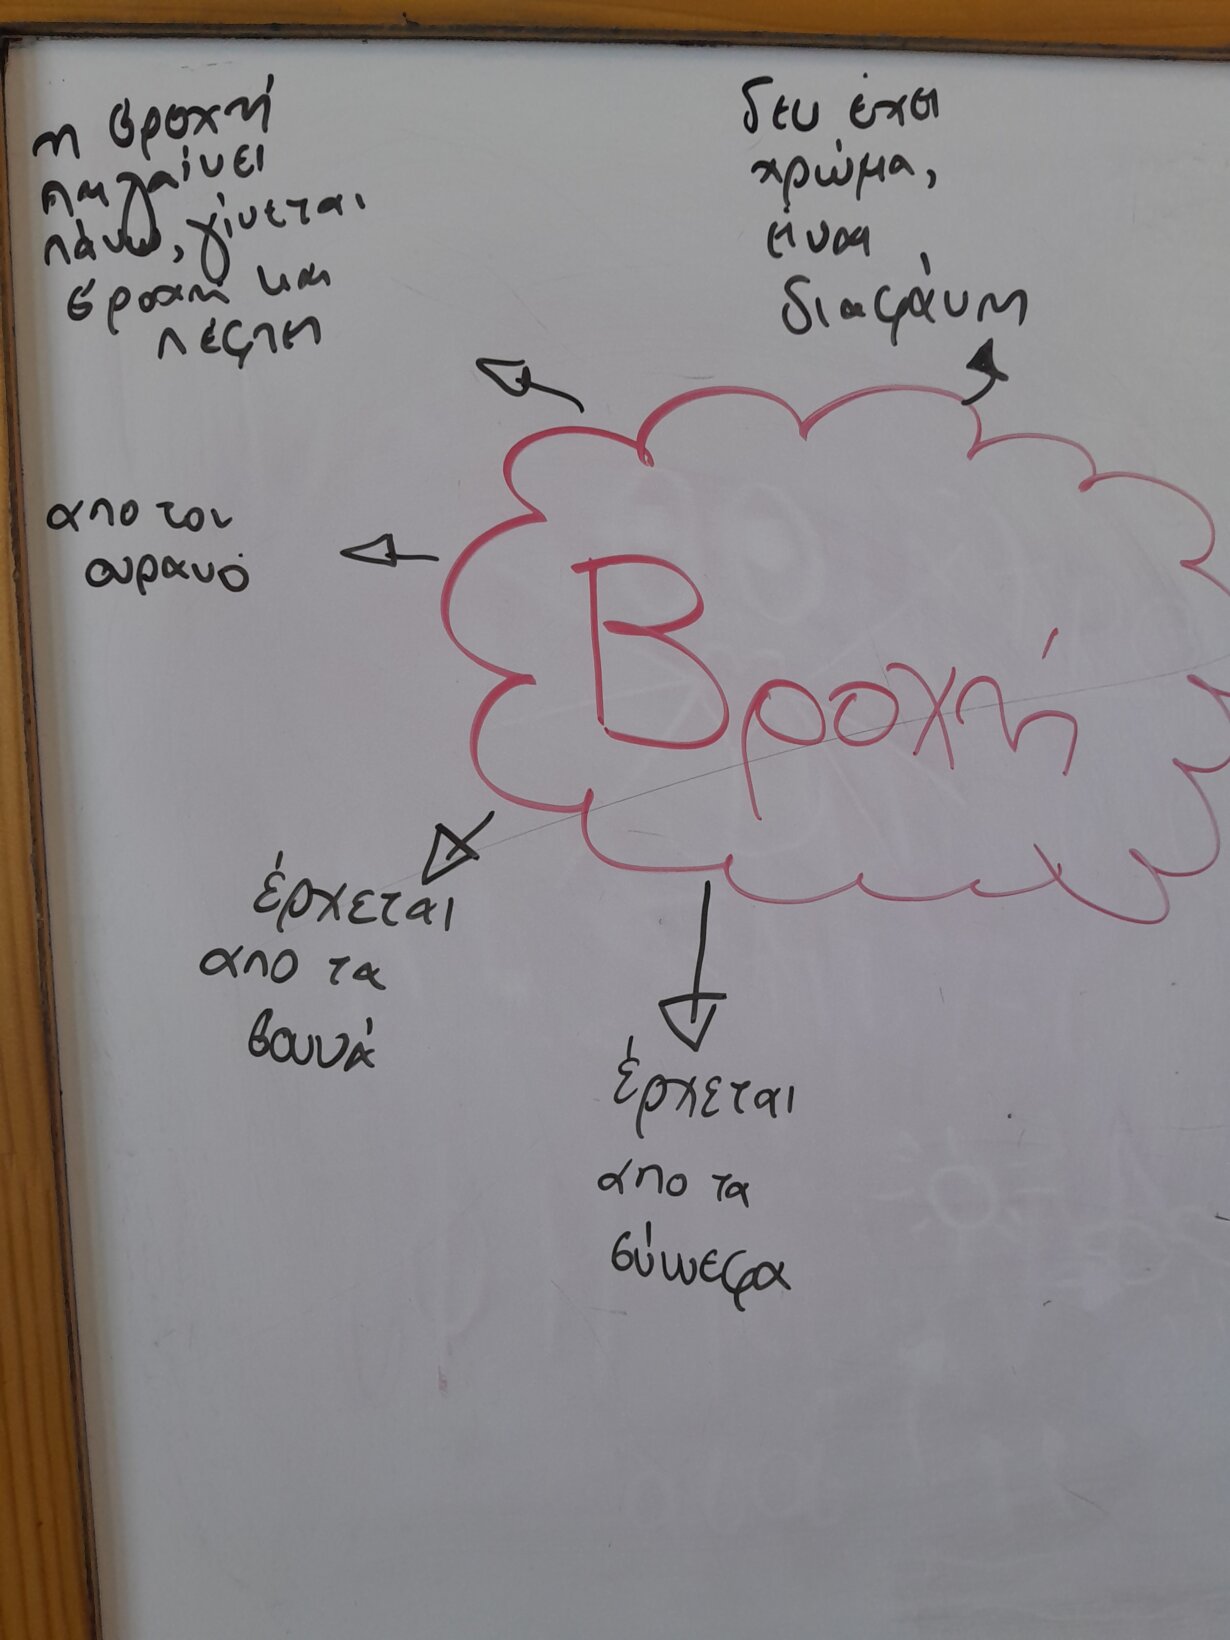 η βροχή
πηγαίνει
πάνω, γίνεται
βροχή και
πέφτει
δεν έχει
χρώμα,
είναι
διαφάνη
από τον
ουρανό
Βροχή
έρχεται
απο τα
βουνά
έρχεται
απο τα
σύννεφα